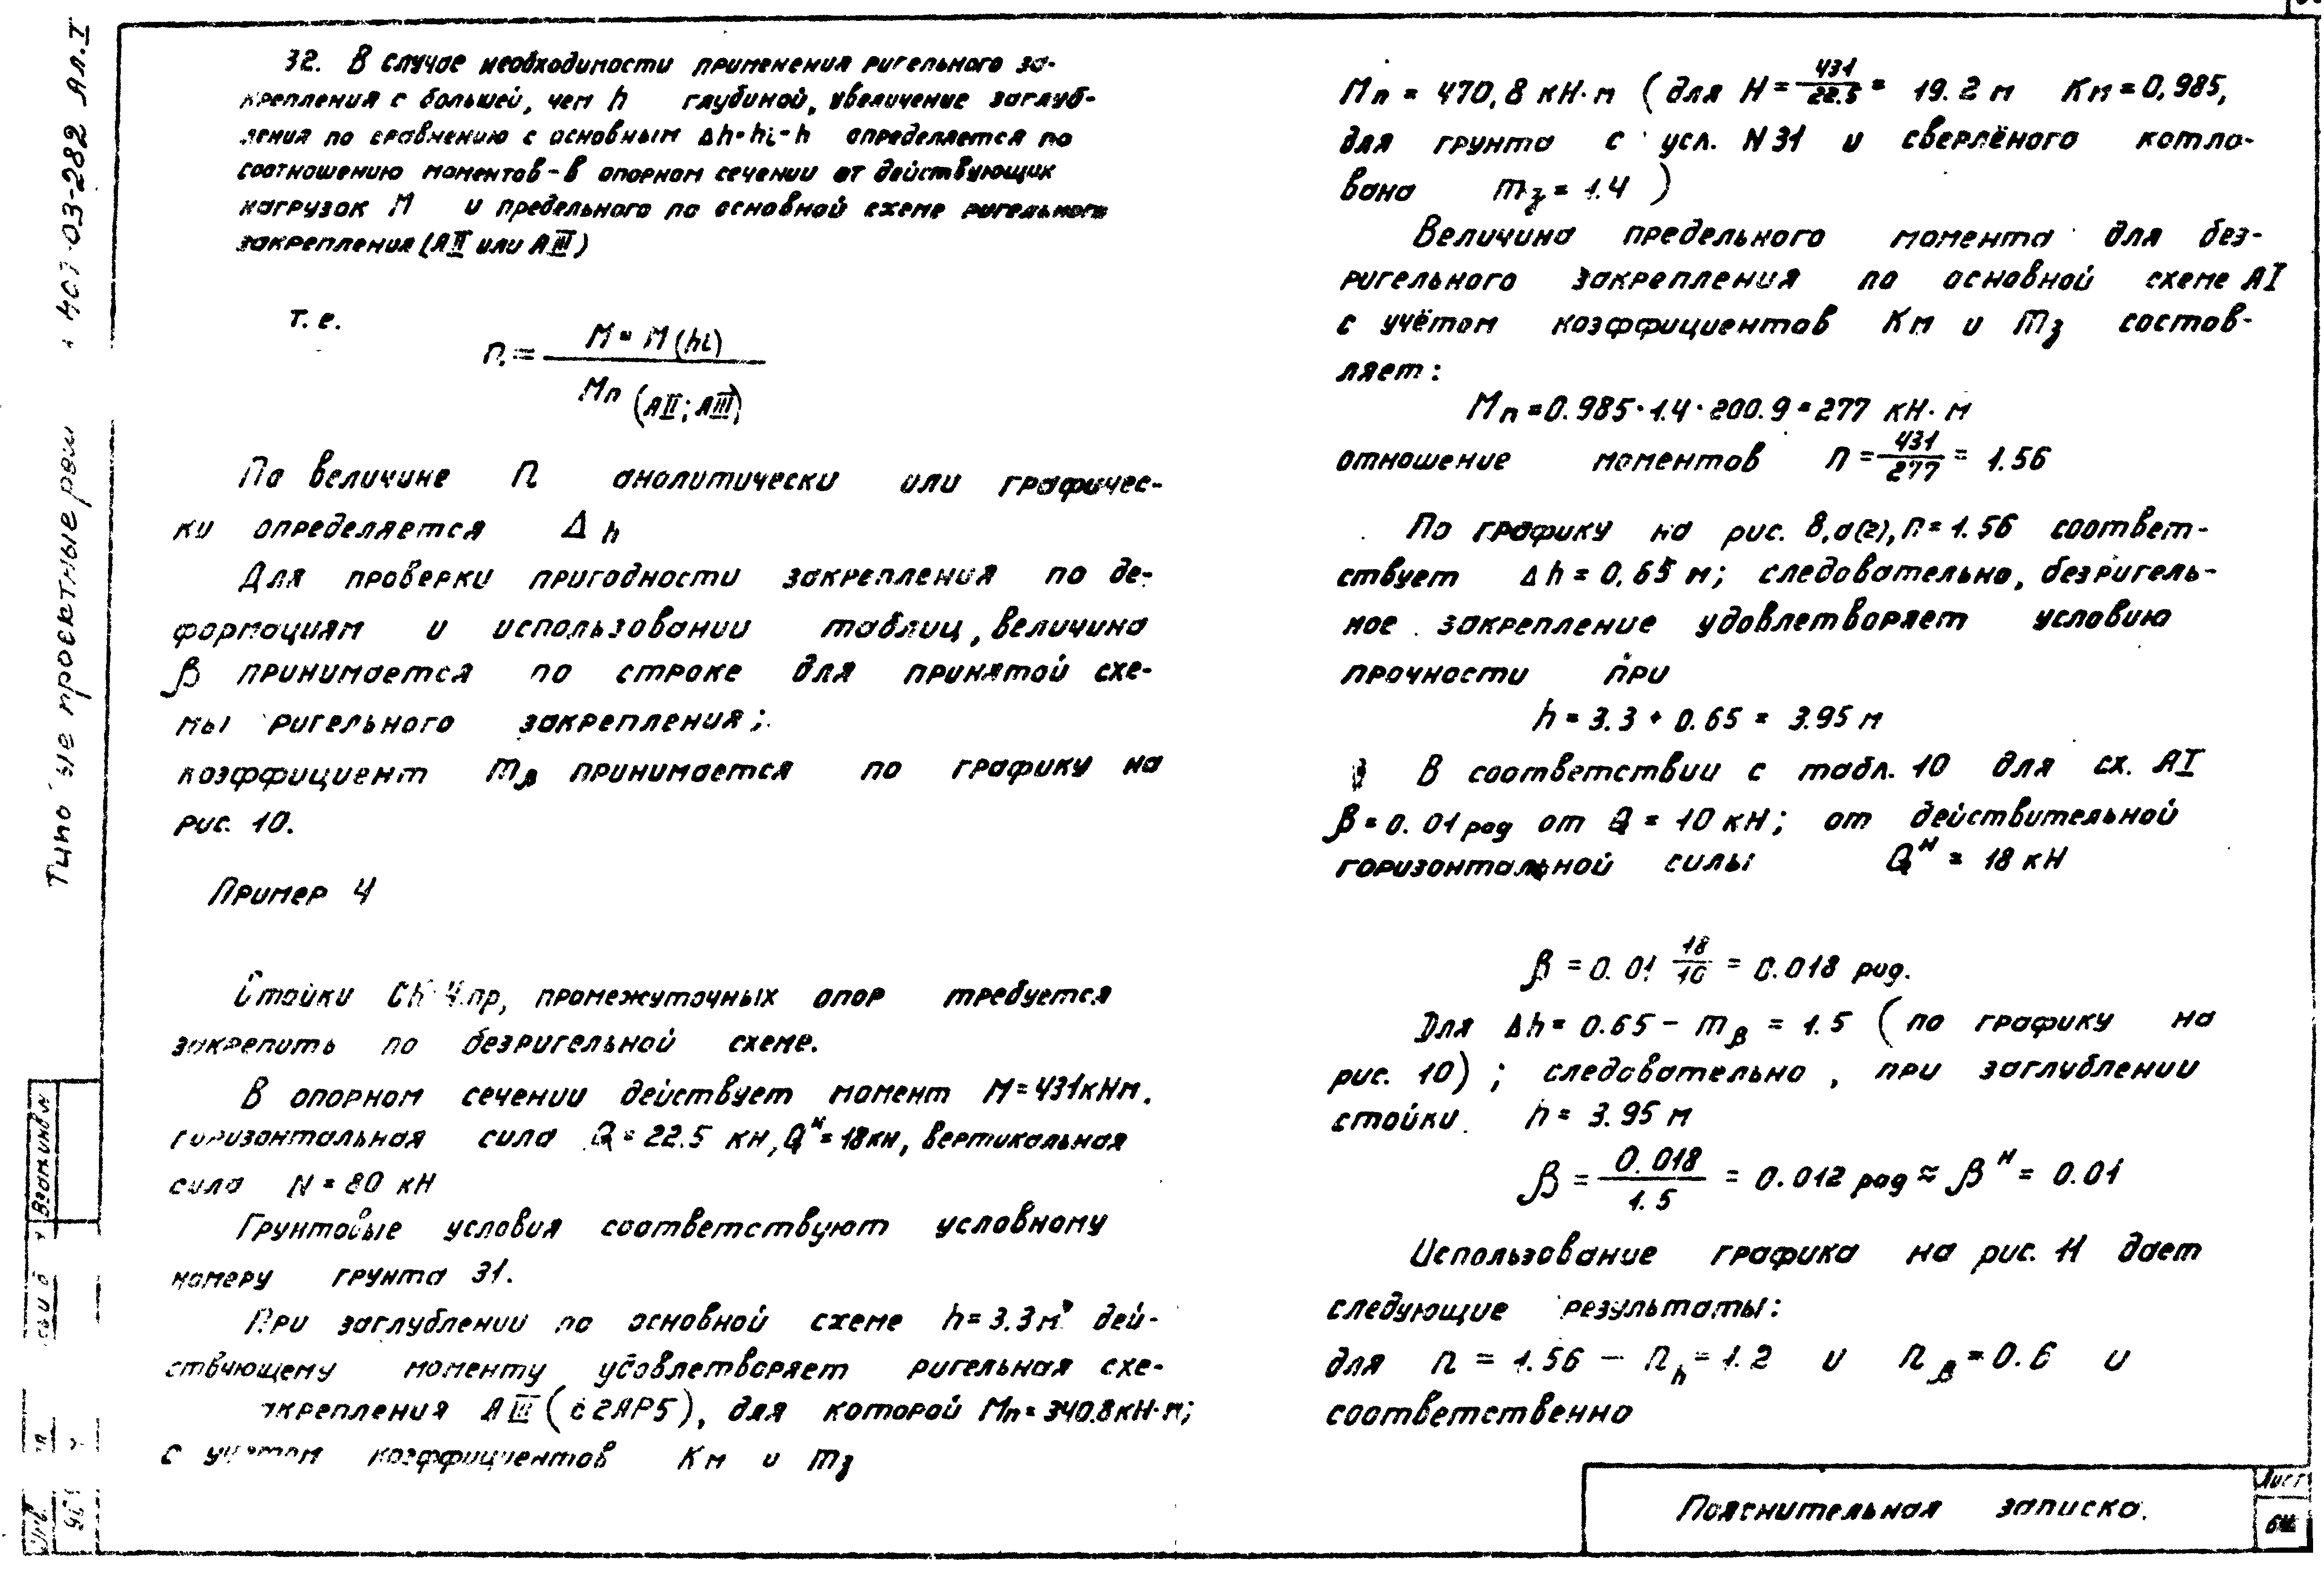 32. В случае необходимости применения ригельного за-
крепления с большей, чем h глубиной, увеличение заглуб-
ления по сравнению с основным Δh=hi-h определяется по
соотношению моментов - в опорном сечении от действующих
нагрузок М и предельного по основной схеме ригельного
закрепления (АII или АIII)
т.е.
n = M = M(hi) / Mп (АII; АIII)
По величине n аналитически или графичес-
ки определяется Δh
Для проверки пригодности закрепления по де-
формациям и использовании таблиц, величина
β принимается по строке для принятой схе-
мы ригельного закрепления;
коэффициент mβ принимается по графику на
рис. 10.
Пример 4
Стойки пр, промежуточных опор требуется
закрепить по безригельной схеме.
В опорном сечении действует момент М=431кНм.
горизонтальная сила Q=22.5 кн, Qн=18кн, вертикальная
сила N=80 кН
Грунтовые условия соответствуют условному
номеру грунта 31.
При заглублении по основной схеме h=3.3м дей-
ствующему моменту удовлетворяет ригельная схе-
крепления АIII (с 2АР5), для которой Мп=340.8кН·м;
с учетом коэффициентов Км и mз
Мп = 470,8 кН·м (для Н = 431/22.5 = 19.2 м Км=0,985,
для грунта с усл. N31 и сверлёного котло-
вана mз=1.4)
Величина предельного момента для без-
ригельного закрепления по основной схеме АI
с учётом коэффициентов Км и mз состов-
ляет:
Мп=0.985·1.4·200.9=277 кН·м
отношение моментов n = 431/277 = 1.56
По графику на рис. 8,а(г), n=1.56 соответ-
ствует Δh=0,65 м; следовательно, безригель-
ное закрепление удовлетворяет условию
прочности при
h=3.3+0.65=3.95 м
В соответствии с табл. 10 для сх. АI
β=0.01 рад от Q=10 кН; от действительной
горизонтальной силы Qн=18 кН
β=0.01 18/10 = 0.018 рад.
Для Δh=0.65 - mβ=1.5 (по графику на
рис. 10); следовательно, при заглублении
стойки h=3.95 м
β = 0.018/1.5 = 0.012 рад ≈ βн = 0.01
Использование графика на рис. 11 дает
следующие результаты:
для n=1.56 - nh=1.2 и nβ=0.6 и
соответственно
Пояснительная записка.
Лист
407-03-282 Ал.I
проектные реш
Взам инв N